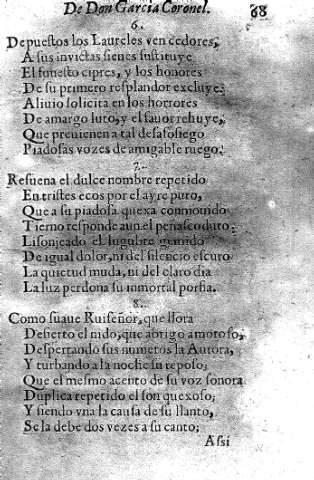 De Don Garcia Coronel. 68
6.
Depuestos los Laureles vencedores,
A sus invictas sienes sustituye
El funesto cipres, y los honores
De su primero resplandor excluye:
Aliuio solicita en los horrores
De amargo luto, y el fauor rehuye,
Que preuienen a tal desassosiego
Piadosas vozes de amigable ruego.
7.
Resuena el dulce nombre repetido
En tristes ecos por el ayre puro,
Que a su piadosa quexa conmouido
Tierno responde aun el peñasco duro:
Lisonjeado el lugubre gemido
De igual dolor, ni del silencio escuro
La quietud muda, ni del claro dia
La luz perdona su inmortal porfia.
8.
Como suaue Ruiseñor, que llora
Desierto el nido, que abrigo amoroso,
Despertando sus numeros la Aurora,
Y turbando a la noche su reposo;
Que el mesmo acento de su voz sonora
Duplica repetido el son quexoso;
Y siendo vna la causa de su llanto,
Se la debe dos vezes a su canto;
Assi